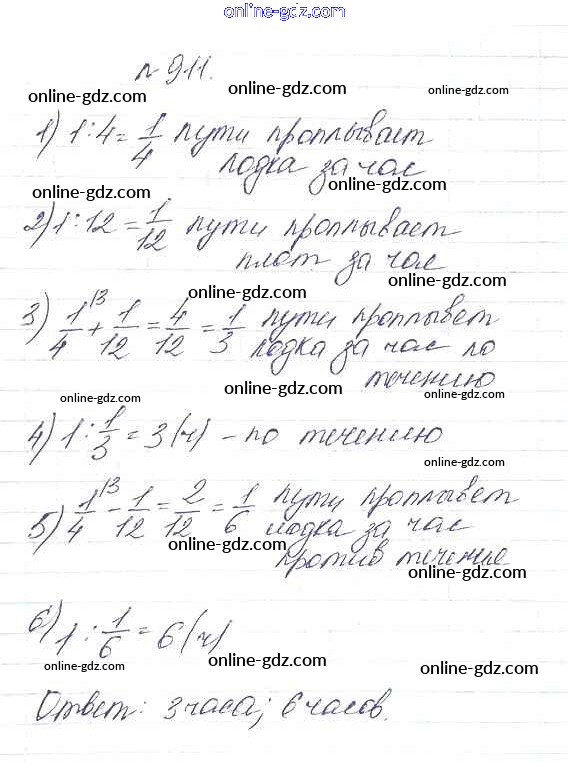 online-gdz.com
№ 911.
online-gdz.com online-gdz.com
1) 1:4=1/4 пути проплывает
лодка за час
online-gdz.com online-gdz.com
2) 1:12=1/12 пути проплывает
плот за час
online-gdz.com online-gdz.com
3) 1/4^\3+1/12=4/12=1/3 пути проплывет
лодка за час по
течению
online-gdz.com online-gdz.com online-gdz.com
4) 1:1/3=3(ч) - по течению
online-gdz.com
5) 1/4^\3-1/12=2/12=1/6 пути проплывет
лодка за час
против течение
online-gdz.com online-gdz.com
6) 1:1/6=6(ч)
online-gdz.com online-gdz.com online-gdz.com
Ответ: 3 часа; 6 часов.